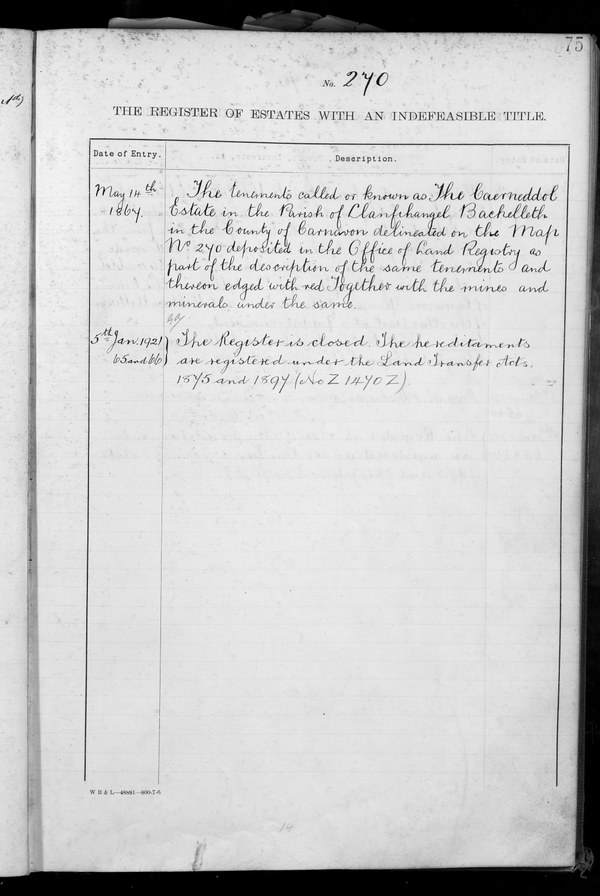 75
No. 270
THE REGISTER OF ESTATES WITH AN INDEFEASIBLE TITLE.
Date of Entry.
Description.
May 14th
1867.
The tenements called or known as The Caerneddol
Estate in the Parish of Llanfihangel Bachelleth
in the County of Carnarvon delineated on the Map
No 270 deposited in the Office of Land Registry as
part of the description of the same tenements and
thereon edged with red Together with the mines and
minerals under the same.
5th Jan. 1921
65 and 66
The Register is closed. The hereditaments
are registered under the Land Transfer Acts.
1875 and 1897 (No Z 1470 Z)
W B & L—48881—800-7-6